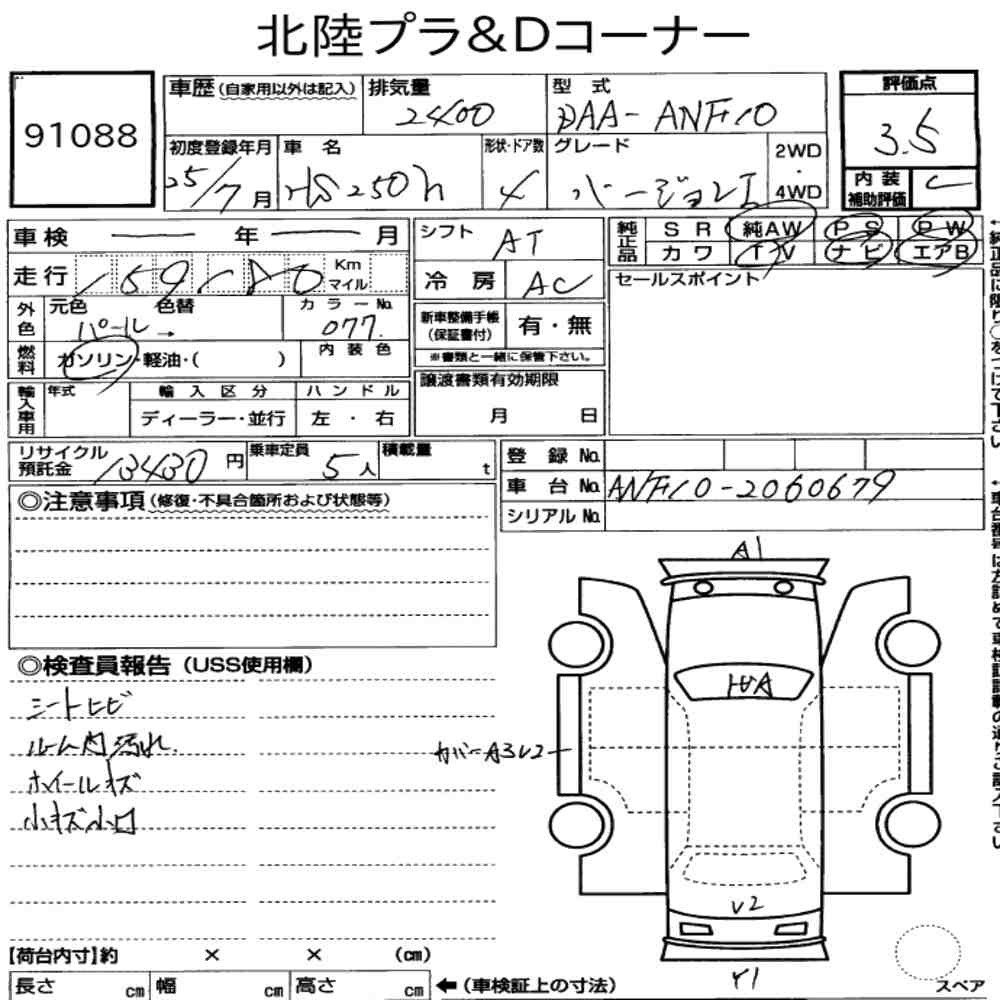 北陸プラ&Dコーナー
91088
車歴(自家用以外は記入)
排気量
2400
型 式
DAA-ANF10
評価点
3.5
初度登録年月
25/7月
車 名
HS250h
形状・ドア数
4
グレード
バージョンI
2WD
・
4WD
内 装
補助評価
C
車検 年 月
シフト
AT
純正品
SR 純AW PS PW
カワ TV ナビ エアB
走行
159,180
Km
マイル
冷 房
AC
セールスポイント
外色
元色
パール→
色替
カラーNo.
077
新車整備手帳
(保証書付)
有・無
※書類と一緒に保管下さい。
燃料
ガソリン・軽油・( )
内 装 色
譲渡書類有効期限
月 日
輸入車用
年式
輸 入 区 分
ディーラー・並行
ハ ン ド ル
左 ・ 右
リサイクル
預託金
13430円
乗車定員
5人
積載量
t
登 録 No.
車 台 No.
ANF10-2060679
シリアル No.
◎注意事項(修復・不具合箇所および状態等)
◎検査員報告(USS使用欄)
シートヒビ
ルーム内汚れ
ホイールキズ
小キズ小凹
A1
カバーA3
V2
Y1
【荷台内寸】約 × × (cm)
長さ cm 幅 cm 高さ cm
←(車検証上の寸法)
スペア